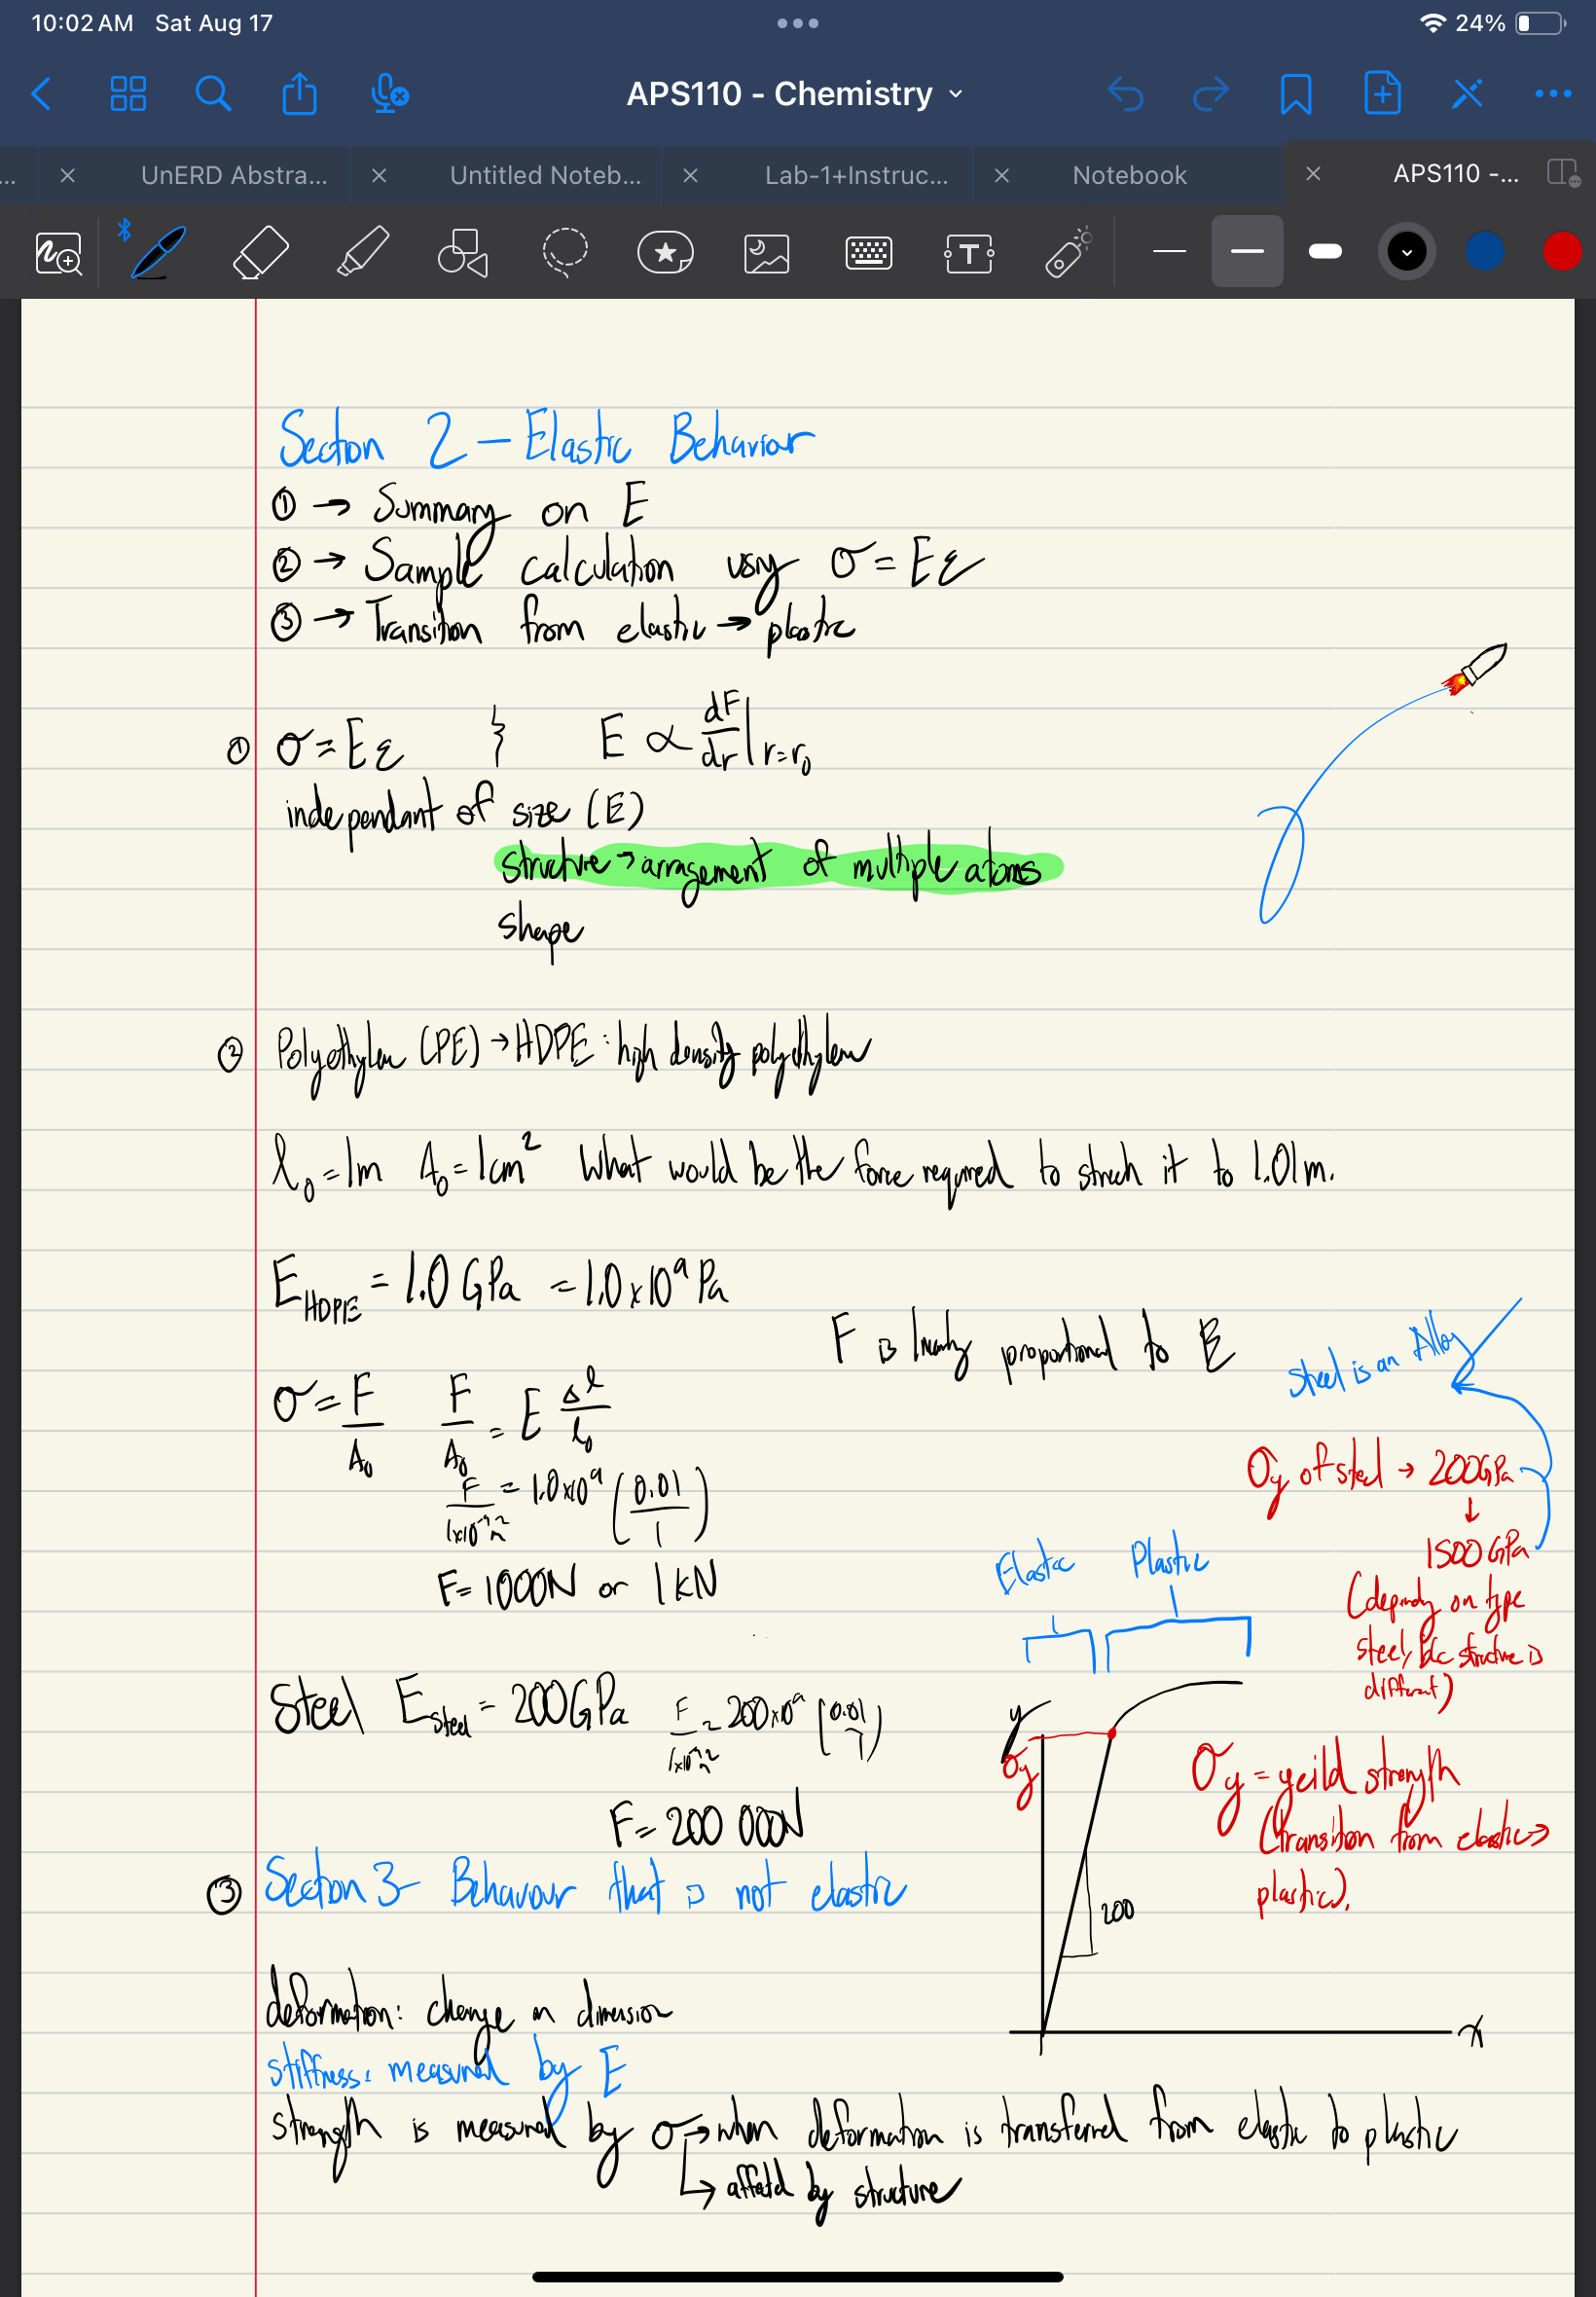 10:02 AM Sat Aug 17
24%
APS110 - Chemistry
...
UnERD Abstra...
Untitled Noteb...
Lab-1+Instruc...
Notebook
APS110 -...
T
Section 2 - Elastic Behavior
① → Summary on E
② → Sample calculation using σ = Eε
③ → Transition from elastic → plastic
① σ = Eε } E ∝ dF/dr |r=r₀
independant of size (E)
structure → arrangement of multiple atoms
shape
② Polyethylene (PE) → HDPE : high density polyethylene
l₀ = 1m A₀ = 1cm² What would be the force required to strech it to 1.01m.
E HDPE = 1.0 GPa = 1.0 x 10⁹ Pa
F is linearly proportional to E
steel is an Alloy
σ = F/A₀ F/A₀ = E Δl/l₀
σy of steel → 200GPa
↓
1500 GPa
(depending on type
steel, bc structure is
different)
F/1x10⁻⁴m² = 1.0x10⁹ (0.01/1)
F = 1000N or 1kN
Elastic Plastic
Steel E steel = 200GPa F/1x10⁻⁴m² = 200x10⁹ (0.01/1)
F = 200 000N
y
σy
200
x
σy = yeild strength
(transition from elastic →
plastic).
③ Section 3 - Behavour that is not elastic
deformation: change in dimension
stiffness: measured by E
strength is measured by σ → when deformation is transferred from elastic to plastic
↳ affected by structure